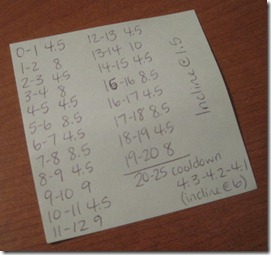 0-1 4.5
1-2 8
2-3 4.5
3-4 8
4-5 4.5
5-6 8.5
6-7 4.5
7-8 8.5
8-9 4.5
9-10 9
10-11 4.5
11-12 9
12-13 4.5
13-14 10
14-15 4.5
15-16 8.5
16-17 4.5
17-18 8.5
18-19 4.5
19-20 8
20-25 cooldown
4.3-4.2-4.1
(incline @ 6)
Incline @ 1.5